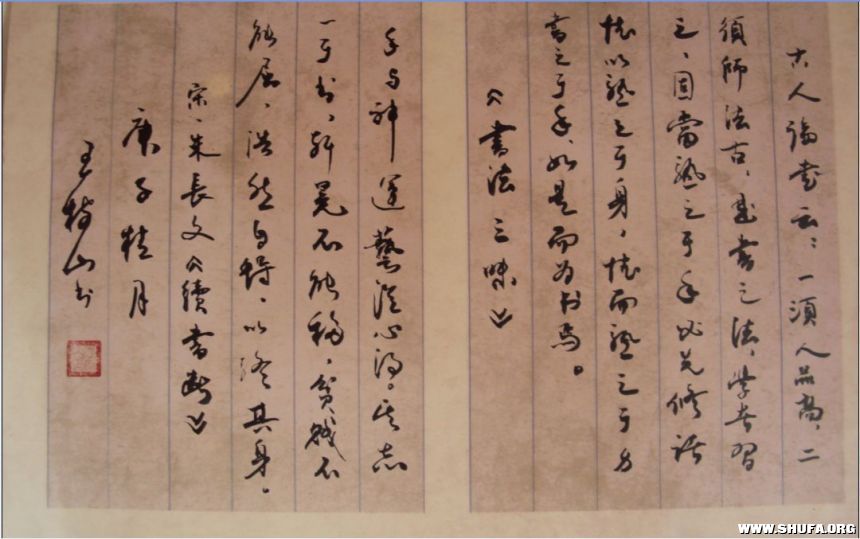 古人論書云：一須人品高，二
須師法古，是書之法，學者習
之，固當熟之于手必先修諸
德以熟之于身，德而熟之于身
書之于手，如是而為书焉。
《書法三昧》
手与神運藝從心得。其志
一于书，軒冕不能移，貧賤不
能屈，浩然自得，以終其身。
宋、朱長文《續書斷》
庚子桂月
王山书
WWW.SHUFA.ORG